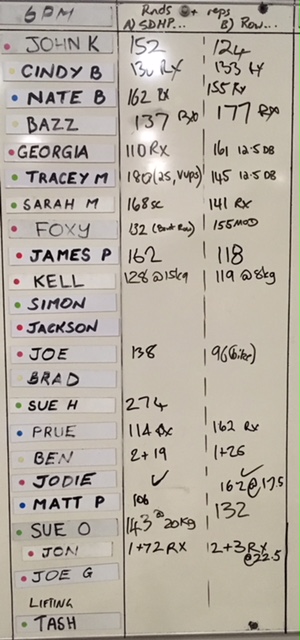 6PM Rnds + reps
A) SDHP... B) Row...
JOHN K 152 124
CINDY B 130 RX 133 RX
NATE B 162 RX 155 RX
BAZZ 137 RX 177 RX
GEORGIA 110 RX 161 12.5 DB
TRACEY M 180 (25, Vups) 145 12.5 DB
SARAH M 168 sc 141 RX
FOXY 132 (Bent Row) 155 MOD
JAMES P 162 118
KELL 128 @15kg 119 @8kg
SIMON
JACKSON
JOE 138 96 (bike)
BRAD
SUE H 274
PRUE 114 RX 162 RX
BEN 2+19 1+26
JODIE ✓ ✓ 162 @17.5
MATT P 106 132
SUE O 143 @ 20kg
JON 1+72 RX 2+3 RX @22.5
JOE G
LIFTING
TASH